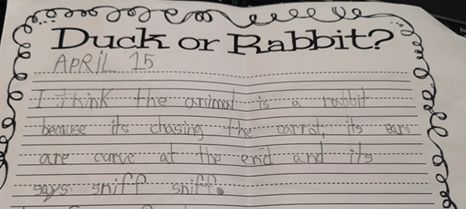 Duck or Rabbit?
APRIL 15
I think the animal is a rabbit
because its chasing the carrot, its ears
are curve at the end and its
says sniff sniff.